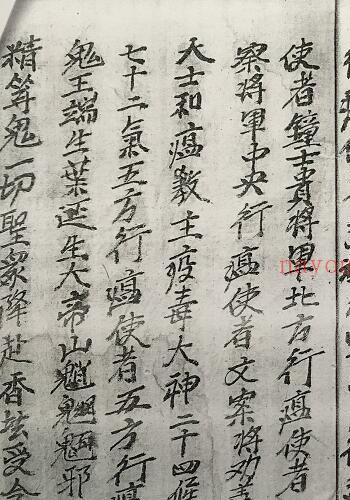 使者鐘士貴將軍北方行瘟使者
察將軍中央行瘟使者文案將
天士和瘟教主疫毒大神二十四候
七十二氣五方行瘟使者五方行瘟
鬼王端生葉廷生大常山魈魍魎邪
精等鬼一切聖衆降赴香筵受今